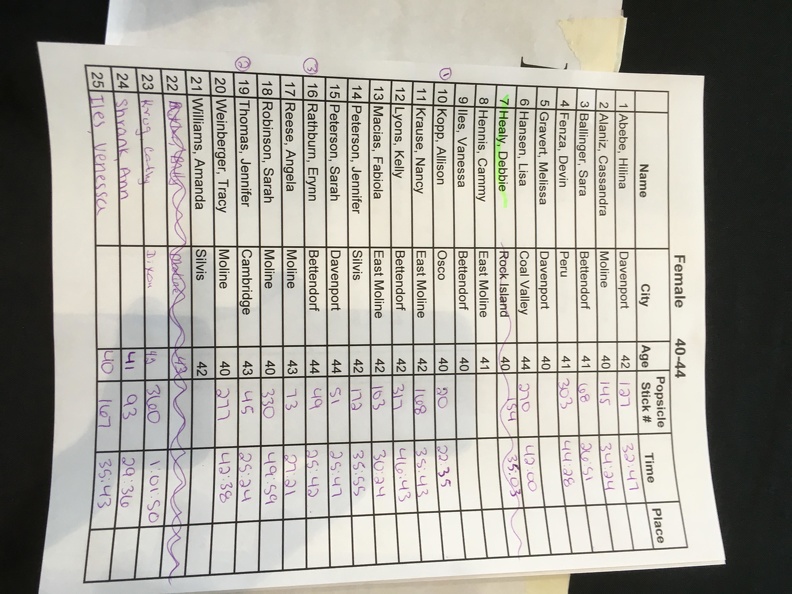 Female 40-44
Name City Age Popsicle Stick # Time Place
1 Abebe, Hilina Davenport 42 127 32:47
2 Alaniz, Cassandra Moline 40 145 34:24
3 Ballinger, Sara Bettendorf 41 68 26:51
4 Fenza, Devin Peru 41 303 44:28
5 Gravert, Melissa Davenport 40
6 Hansen, Lisa Coal Valley 44 270 42:00
7 Healy, Debbie Rock Island 40 154 35:03
8 Hennis, Cammy East Moline 41
9 Iles, Vanessa Bettendorf 40
① 10 Kopp, Allison Osco 40 20 22:35
11 Krause, Nancy East Moline 42 168 35:43
12 Lyons, Kelly Bettendorf 42 317 46:43
13 Macias, Fabiola East Moline 42 103 30:24
14 Peterson, Jennifer Silvis 42 172 35:55
15 Peterson, Sarah Davenport 44 51 25:47
③ 16 Rathburn, Erynn Bettendorf 44 49 25:42
17 Reese, Angela Moline 43 73 27:21
18 Robinson, Sarah Moline 40 330 49:59
② 19 Thomas, Jennifer Cambridge 43 45 25:24
20 Weinberger, Tracy Moline 40 277 42:38
21 Williams, Amanda Silvis 42
22
23 Krug Cathy Dixon 360 1:01:50
24 Shrank, Ann 41 93 29:36
25 Iles, Venessa 40 167 35:43